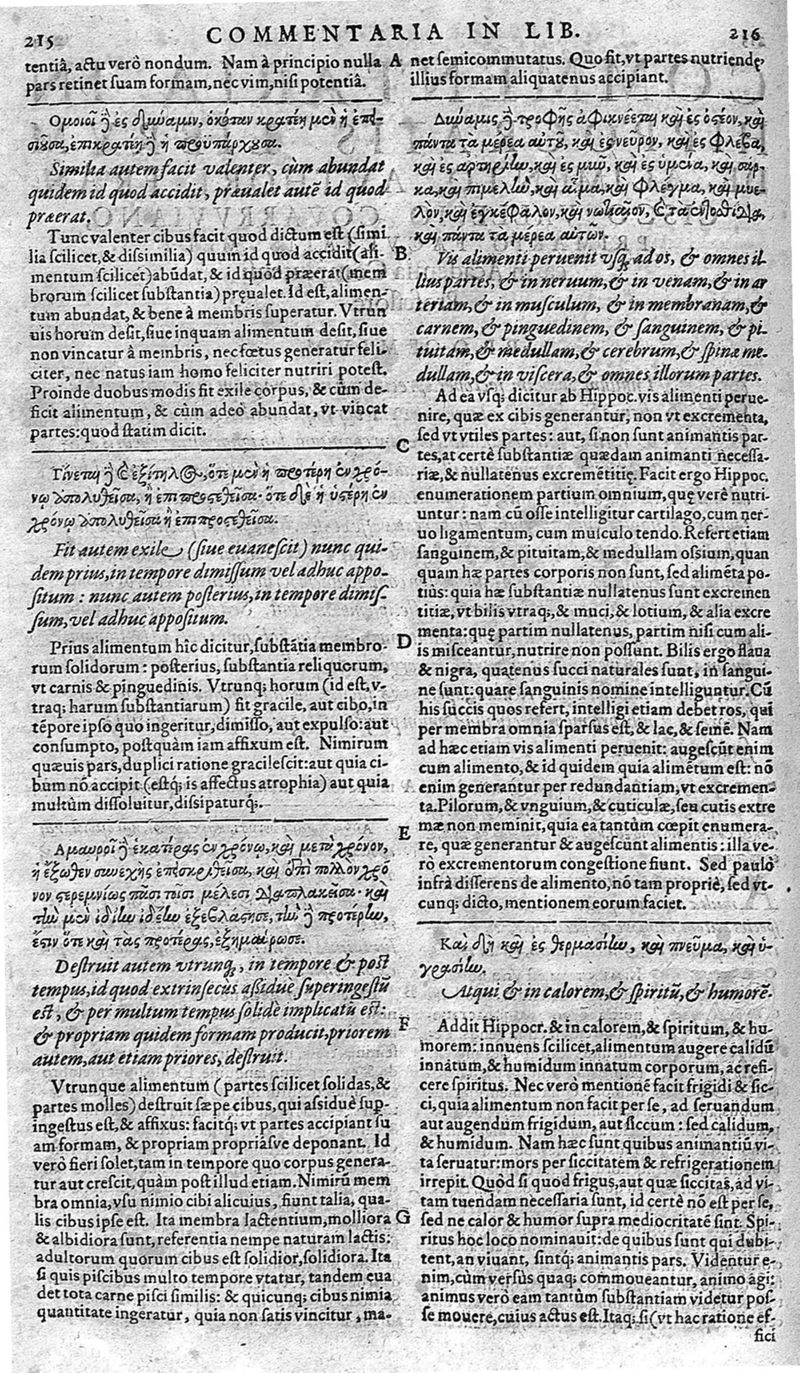 215
COMMENTARIA IN LIB.
216
tentiâ, actu verò nondum. Nam à principio nulla
pars retinet suam formam, nec vim, nisi potentiâ.
Ὁμοιοῖ ἢ ἐς δύναμιν, ὁκόταν κρατέη μὲν ἡ ἐπι-
οῦσα, ἐπικρατέη ἢ ἡ προϋπάρχουσα.
Similia autem facit valenter, cùm abundat
quidem id quod accidit, præualet autē id quod
præerat.
Tunc valenter cibus facit quod dictum est (simi
lia scilicet, & dissimilia) quum id quod accidit (ali-
mentum scilicet) abūdat, & id quod præerat (mem
brorum scilicet substantia) pręualet. Id est, alimen-
tum abundat, & bene à membris superatur. Vtrun
uis horum desit, siue inquam alimentum desit, siue
non vincatur à membris, nec fœtus generatur feli-
citer, nec natus iam homo feliciter nutriri potest.
Proinde duobus modis fit exile corpus, & cùm de-
ficit alimentum, & cùm adeò abundat, vt vincat
partes: quod statim dicit.
Γίνεται ἢ & ἐξίτηλος, ὅτε μὲν ἡ προτέρη ἐν χρό-
νῳ ἀπολυθεῖσα, ἢ ἐπιπροςτεθεῖσα· ὅτε δὲ ἡ ὑστέρη ἐν
χρόνῳ ἀπολυθεῖσα ἢ ἐπιπροςτεθεῖσα.
Fit autem exile (siue euanescit) nunc qui-
dem prius, in tempore dimissum vel adhuc appo-
situm: nunc autem posterius, in tempore dimis-
sum, vel adhuc appositum.
Prius alimentum hîc dicitur, substātia membro-
rum solidorum: posterius, substantia reliquorum,
vt carnis & pinguedinis. Vtrunq; horum (id est, v-
traq; harum substantiarum) fit gracile, aut cibo, in
tēpore ipso quo ingeritur, dimisso, aut expulso: aut
consumpto, postquàm iam affixum est. Nimirum
quæuis pars, duplici ratione gracilescit: aut quia ci-
bum nō accipit (estq; is affectus atrophia) aut quia
multùm dissoluitur, dissipaturq;.
Ἀμαυροῖ ἢ ἑκατέρας ἐν χρόνῳ, καὶ μετὰ χρόνον,
ἡ ἔξωθεν συνεχὴς ἐπεισκριθεῖσα, καὶ ἐπὶ πολλὸν χρό
νον στερεμνίως πᾶσι τοῖσι μέλεσι διαπλακεῖσα· καὶ
τὴν μὲν ἰδίην ἰδέην ἐξεβλάστησε, τὴν ἢ προτέρην,
ἔστιν ὅτε καὶ τὰς προτέρας, ἐξημαύρωσε.
Destruit autem vtrunq, in tempore & post
tempus, id quod extrinsecus assidùe superingestū
est, & per multum tempus solidè implicatū est:
& propriam quidem formam producit, priorem
autem, aut etiam priores, destruit.
Vtrunque alimentum (partes scilicet solidas, &
partes molles) destruit sæpe cibus, qui assiduè sup-
ingestus est, & affixus: facitq; vt partes accipiant su
am formam, & propriam propriásve deponant. Id
verò fieri solet, tam in tempore quo corpus genera-
tur aut crescit, quàm post illud etiam. Nimirū mem
bra omnia, vsu nimio cibi alicuius, fiunt talia, qua-
lis cibus ipse est. Ita membra lactentium, molliora
& albidiora sunt, referentia nempe naturam lactis:
adultorum quorum cibus est solidior, solidiora. Ita
si quis piscibus multo tempore vtatur, tandem eua
det tota carne pisci similis: & quicunq; cibus nimia
quantitate ingeratur, quia non satis vincitur, ma-
A
B
C
D
E
F
G
net semicommutatus. Quo fit, vt partes nutriendę
illius formam aliquatenus accipiant.
Δύναμις ἢ τροφῆς ἀφικνέεται καὶ ἐς ὀστέον, καὶ
πάντα τὰ μέρεα αὐτοῦ, καὶ ἐς νεῦρον, καὶ ἐς φλέβα,
καὶ ἐς ἀρτηρίην, καὶ ἐς μῦν, καὶ ἐς ὑμένα, καὶ σάρ-
κα, καὶ πιμελὴν, καὶ αἷμα, καὶ φλέγμα, καὶ μυε-
λὸν, καὶ ἐγκέφαλον, καὶ νωτιαῖον, & τὰ ἐντοσθίδια,
καὶ πάντα τὰ μέρεα αὐτῶν.
Vis alimenti peruenit vsq, ad os, & omnes il-
lius partes, & in neruum, & in venam, & in ar
teriam, & in musculum, & in membranam, &
carnem, & pinguedinem, & sanguinem, & pi-
tuitam, & medullam, & cerebrum, & spinæ me-
dullam, & in viscera, & omnes illorum partes.
Ad ea vsq; dicitur ab Hippoc. vis alimenti perue-
nire, quæ ex cibis generantur, non vt excrementa,
sed vt vtiles partes: aut, si non sunt animantis par-
tes, at certè substantiæ quædam animanti necessa-
riæ, & nullatenus excremētitię. Facit ergo Hippoc.
enumerationem partium omnium, quę verè nutri-
untur: nam cū osse intelligitur cartilago, cum ner-
uo ligamentum, cum musculo tendo. Refert etiam
sanguinem, & pituitam, & medullam ossium, quan
quam hæ partes corporis non sunt, sed alimēta po-
tiùs: quia hæ substantiæ nullatenus sunt excremen
titiæ, vt bilis vtraq;, & muci, & lotium, & alia excre
menta: quę partim nullatenus, partim nisi cum ali-
is misceantur, nutrire non possunt. Bilis ergo flaua
& nigra, quatenus succi naturales sunt, in sangui-
ne sunt: quare sanguinis nomine intelliguntur. Cū
his succis quos refert, intelligi etiam debet ros, qui
per membra omnia sparsus est, & lac, & semē. Nam
ad hæc etiam vis alimenti peruenit: augescūt enim
cum alimento, & id quidem quia alimētum est: nō
enim generantur per redundantiam, vt excremen-
ta. Pilorum, & vnguium, & cuticulæ, seu cutis extre
mæ non meminit, quia ea tantùm cœpit enumera-
re, quæ generantur & augescūt alimentis: illa ve-
rò excrementorum congestione fiunt. Sed paulò
infrà disserens de alimento, nō tam propriè, sed vt-
cunq; dicto, mentionem eorum faciet.
Καὶ δὴ καὶ ἐς θερμασίην, καὶ πνεῦμα, καὶ ὑ-
γρασίην.
Atqui & in calorem, & spiritū, & humorē.
Addit Hippocr. & in calorem, & spiritum, & hu-
morem: innuens scilicet, alimentum augere calidū
innatum, & humidum innatum corporum, ac refi-
cere spiritus. Nec verò mentionē facit frigidi & sic-
ci, quia alimentum non facit per se, ad seruandum
aut augendum frigidum, aut siccum: sed calidum,
& humidum. Nam hæc sunt quibus animantiū vi-
ta seruatur: mors per siccitatem & refrigerationem
irrepit. Quòd si quod frigus, aut quæ siccitas, ad vi-
tam tuendam necessaria sunt, id certè nō est per se,
sed ne calor & humor supra mediocritatē sint. Spi-
ritus hoc loco nominauit: de quibus sunt qui dubi-
tent, an viuant, sintq; animantis pars. Videntur e-
nim, cùm versùs quaq; commoueantur, animo agi:
animus verò eam tantùm substantiam videtur pos-
se mouere, cuius actus est. Itaq; si (vt hac ratione ef-
fici